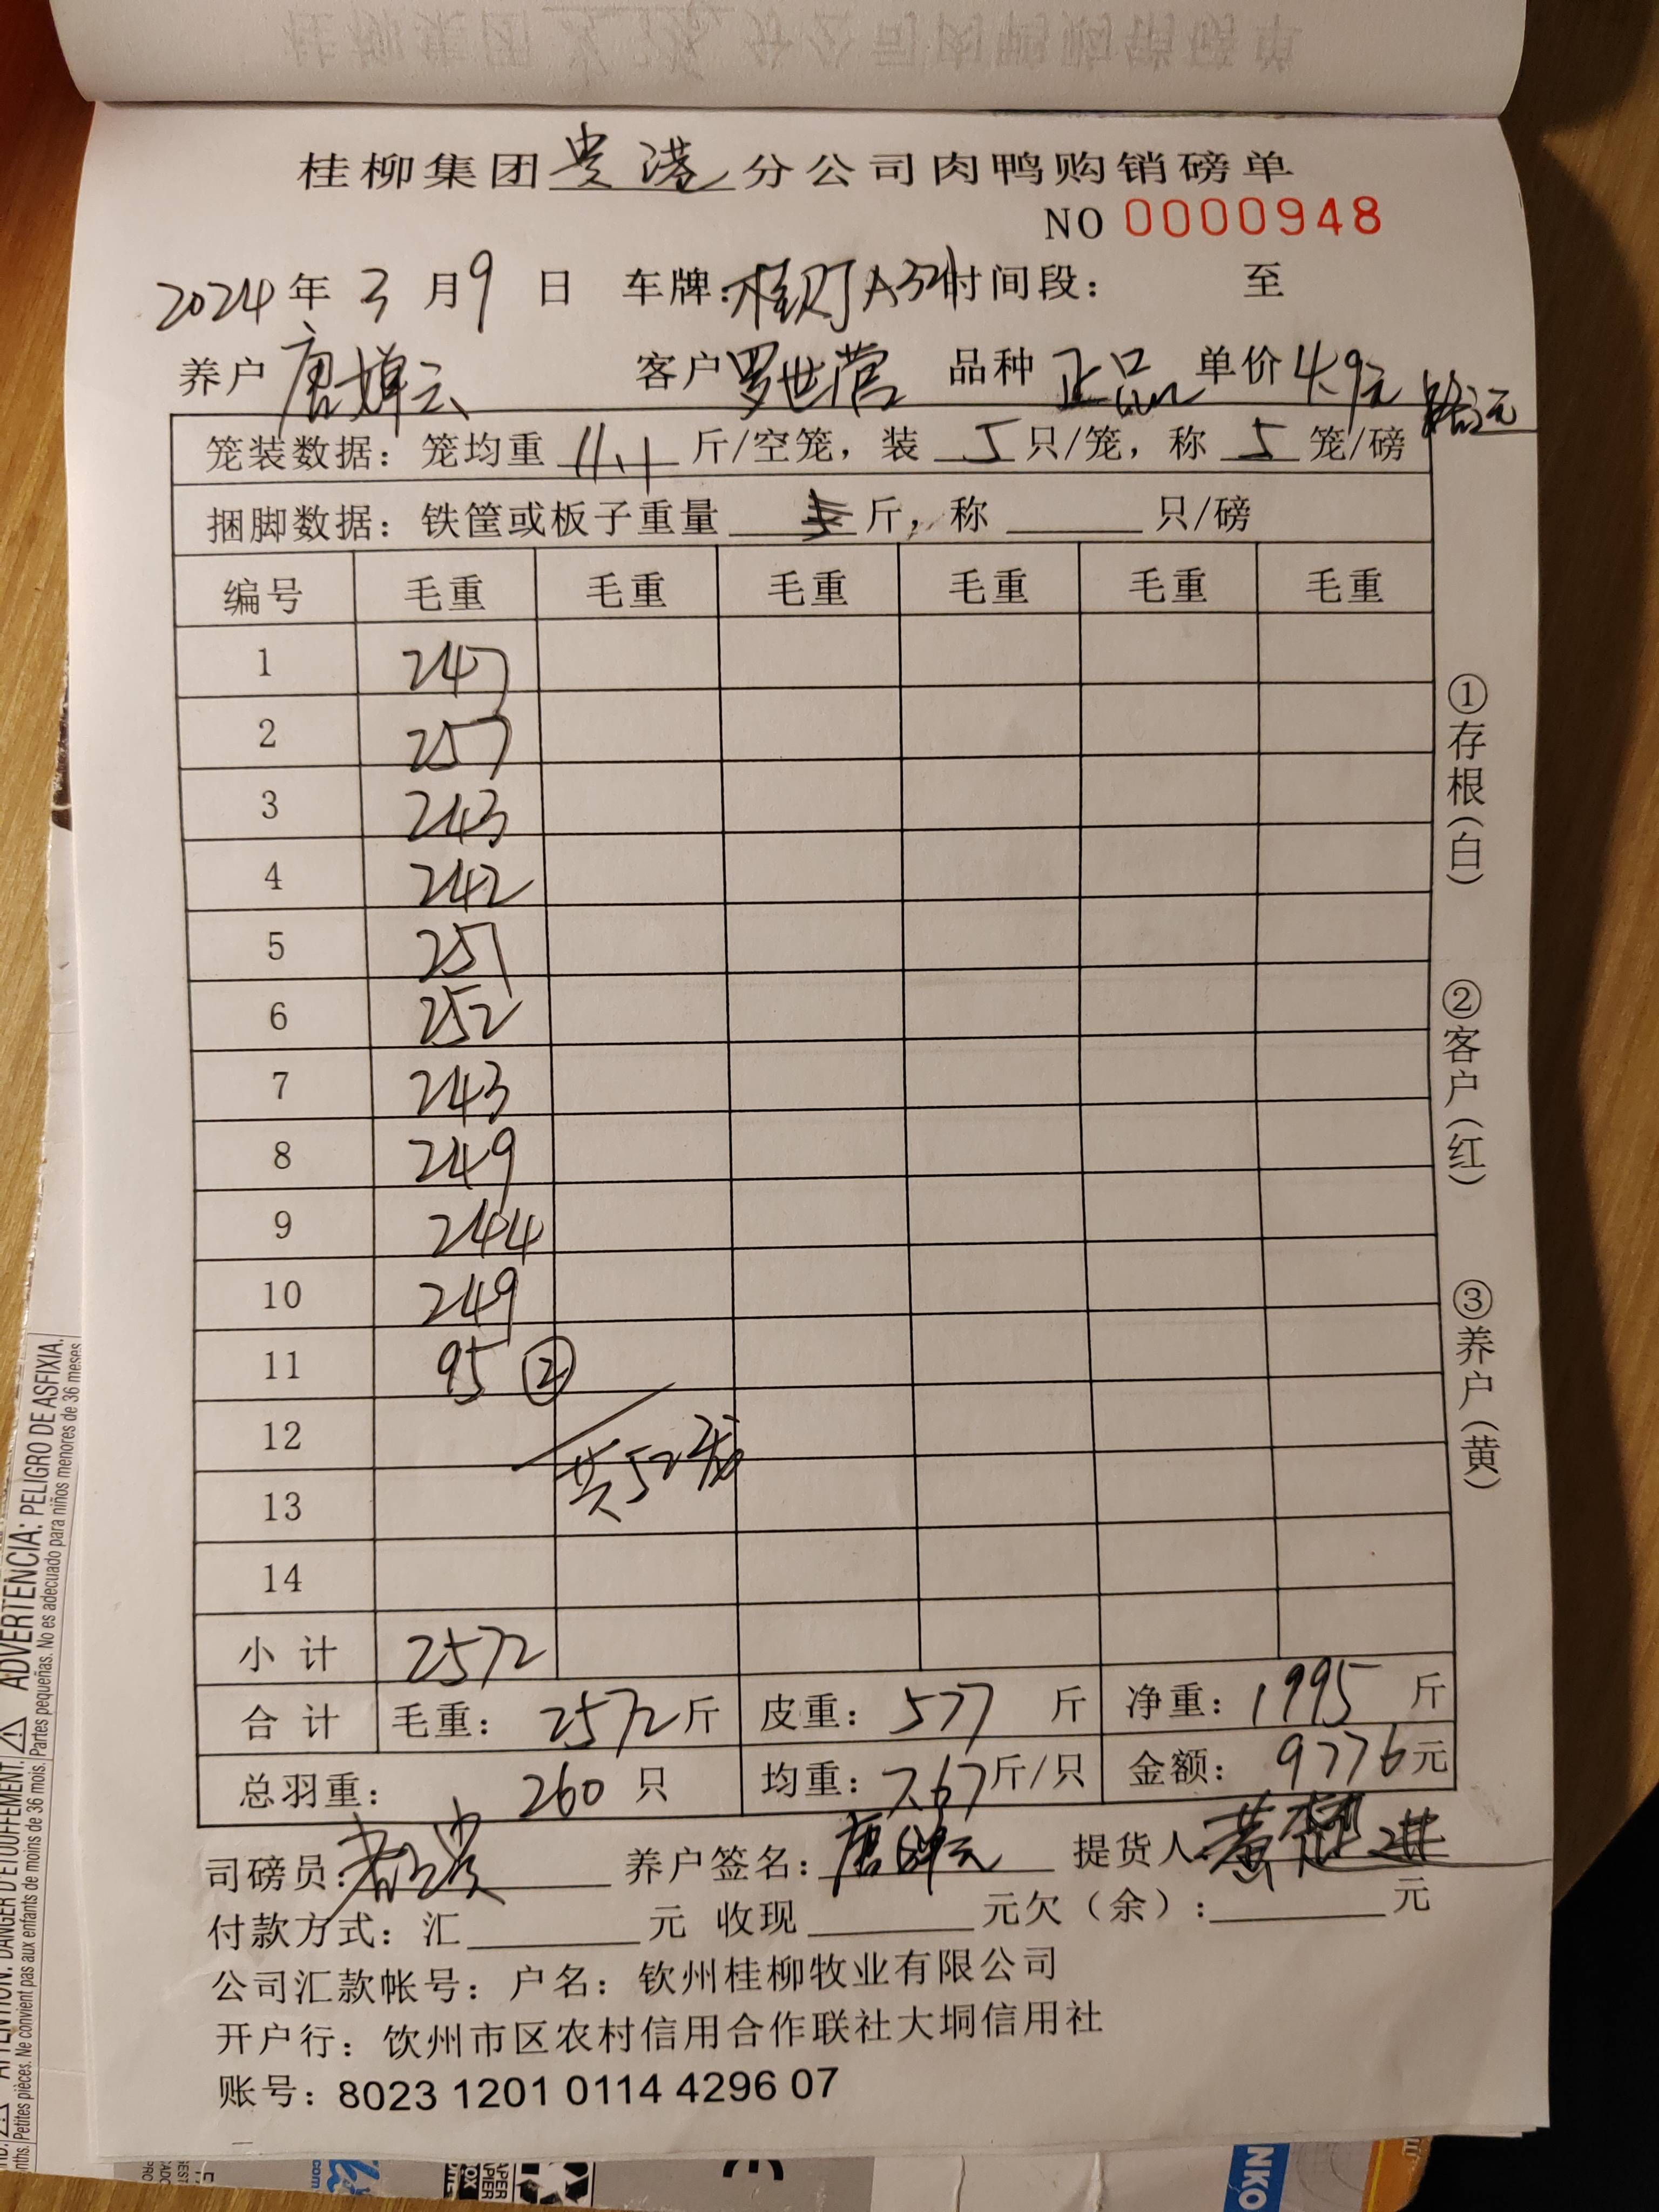 桂柳集团贵港分公司肉鸭购销磅单
NO 0000948
2024年 3 月 9 日 车牌: 时间段: 至
养户 唐婵云 客户 罗世营 品种 正品 单价 4.9元
笼装数据: 笼均重 11.1 斤/空笼, 装 5 只/笼, 称 5 笼/磅
捆脚数据: 铁筐或板子重量 斤, 称 只/磅
编号 毛重 毛重 毛重 毛重 毛重 毛重
1 247
2 257
3 243
4 242
5 251
6 252
7 243
8 249
9 244
10 249
11 95 ②
12
共52笼
13
14
小计 2572
合计 毛重: 2572斤 皮重: 577 斤 净重: 1995 斤
总羽重: 260 只 均重: 7.67斤/只 金额: 9776元
司磅员: 养户签名: 唐婵云 提货人:
付款方式: 汇 元 收现 元欠(余): 元
公司汇款帐号: 户名: 钦州桂柳牧业有限公司
开户行: 饮州市区农村信用合作联社大垌信用社
账号: 8023 1201 0114 4296 07
①存根(白)
②客户(红)
③养户(黄)
ADVERTENCIA: PELIGRO DE ASFIXIA.
Partes pequeñas. No es adecuado para niños menores de 36 meses.
ATTENTION: DANGER D'ÉTOUFFEMENT.
Petites pièces. Ne convient pas aux enfants de moins de 36 mois.